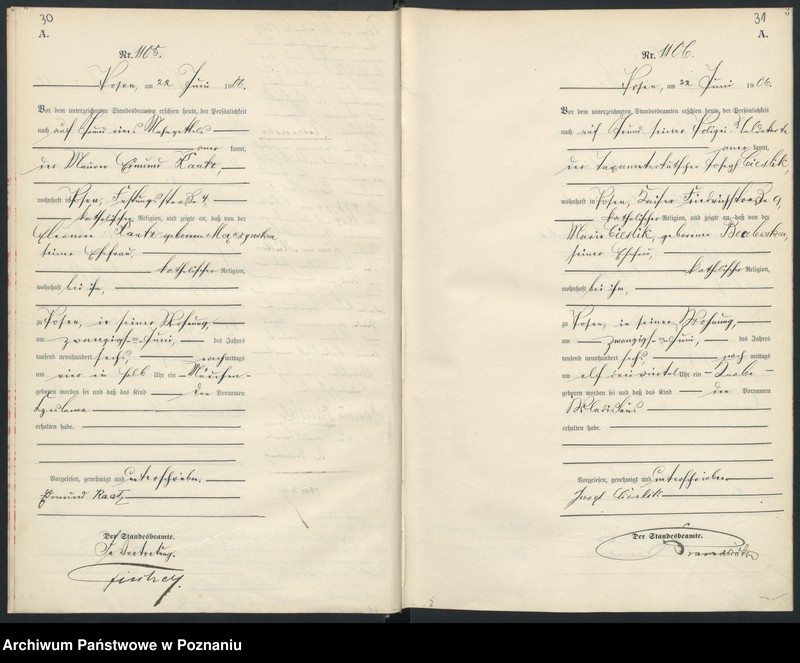 30
A.
Nr. 1105.
Posen, am 22 Juni 1906.
Vor dem unterzeichneten Standesbeamten erschien heute, der Persönlichkeit
nach auf Grund eines
kannt,
der Maurer Edmund Raatz,
wohnhaft in Posen, 4,
katholischer Religion, und zeigte an, daß von der
Eleonore Raatz geborenen
seiner Ehefrau,
katholischer Religion,
wohnhaft bei ihm,
zu Posen, in seiner Wohnung,
am zwanzigsten Juni, des Jahres
tausend neunhundert sechs, nachmittags
um vier ein halb Uhr ein Mädchen
geboren worden sei und daß das Kind den Vornamen
erhalten habe.
Vorgelesen, genehmigt und unterschrieben.
Edmund Raatz
Der Standesbeamte.
In Vertretung.
31
A.
Nr. 1106.
Posen, am 22 Juni 1906.
Vor dem unterzeichneten Standesbeamten erschien heute, der Persönlichkeit
nach auf Grund seiner
kannt,
der Joseph Cieslik,
wohnhaft in Posen, Kaiser Friedrichstraße 9,
katholischer Religion, und zeigte an, daß von der
Marie Cieslik, geborenen
seiner Ehefrau,
katholischer Religion,
wohnhaft bei ihm,
zu Posen, in seiner Wohnung,
am zwanzigsten Juni, des Jahres
tausend neunhundert sechs nachmittags
um elf dreiviertel Uhr ein Knabe
geboren worden sei und daß das Kind den Vornamen
Wladislaus
erhalten habe.
Vorgelesen, genehmigt und unterschrieben
Józef Cieślik
Der Standesbeamte.
Archiwum Państwowe w Poznaniu